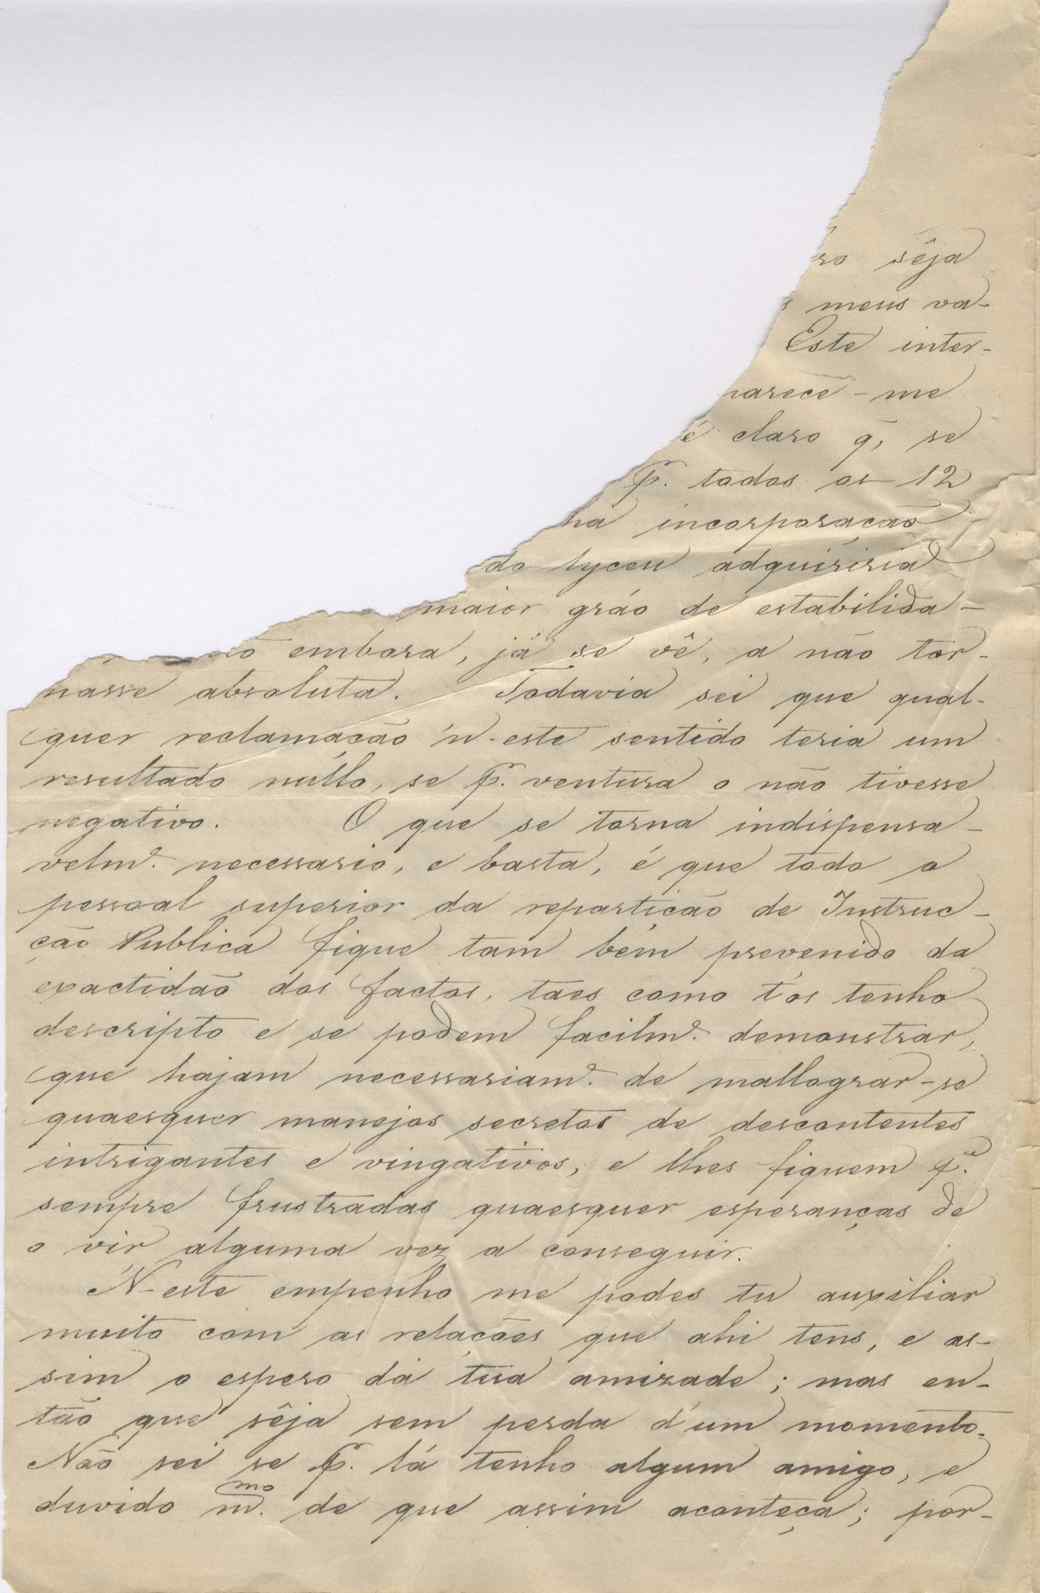 ro sêja
s meus va-
Este inter-
parece-me
é claro q̃, se
p̃. todos os 12
ha incorporação
do lyceu adquiriria
maior gráo de estabilida-
embora, já se vê, a não tor-
nasse absoluta. Todavia sei que qual-
quer reclamação n-este sentido teria um
resultado nullo, se p̃. ventura o não tivesse
negativo. O que se torna indispensa-
velm.e necessario, e basta, é que todo o
pessoal superior da repartição de Instruc-
ção Publica fique tam bém prevenido da
exactidão dos factos, taes como t'os tenho
descripto e se podem facilm.e demonstrar,
que hajam necessariam.e de mallograr-se
quaesquer manejos secretos de descontentes
intrigantes e vingativos, e lhes fiquem p.a
sempre frustradas quaesquer esperanças de
o vir alguma vez a conseguir.
N-este empenho me podes tu auxiliar
muito com as relações que ahi tens, e as-
sim o espero da tua amizade; mas en-
tão que sêja sem perda d'um momento.
Não sei se p̃. lá tenho algum amigo, e
duvido m.mo de que assim aconteça; por-